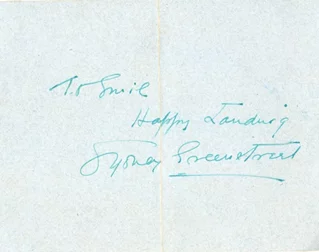 To Emil
Happy Landing
Sydney Greenstreet